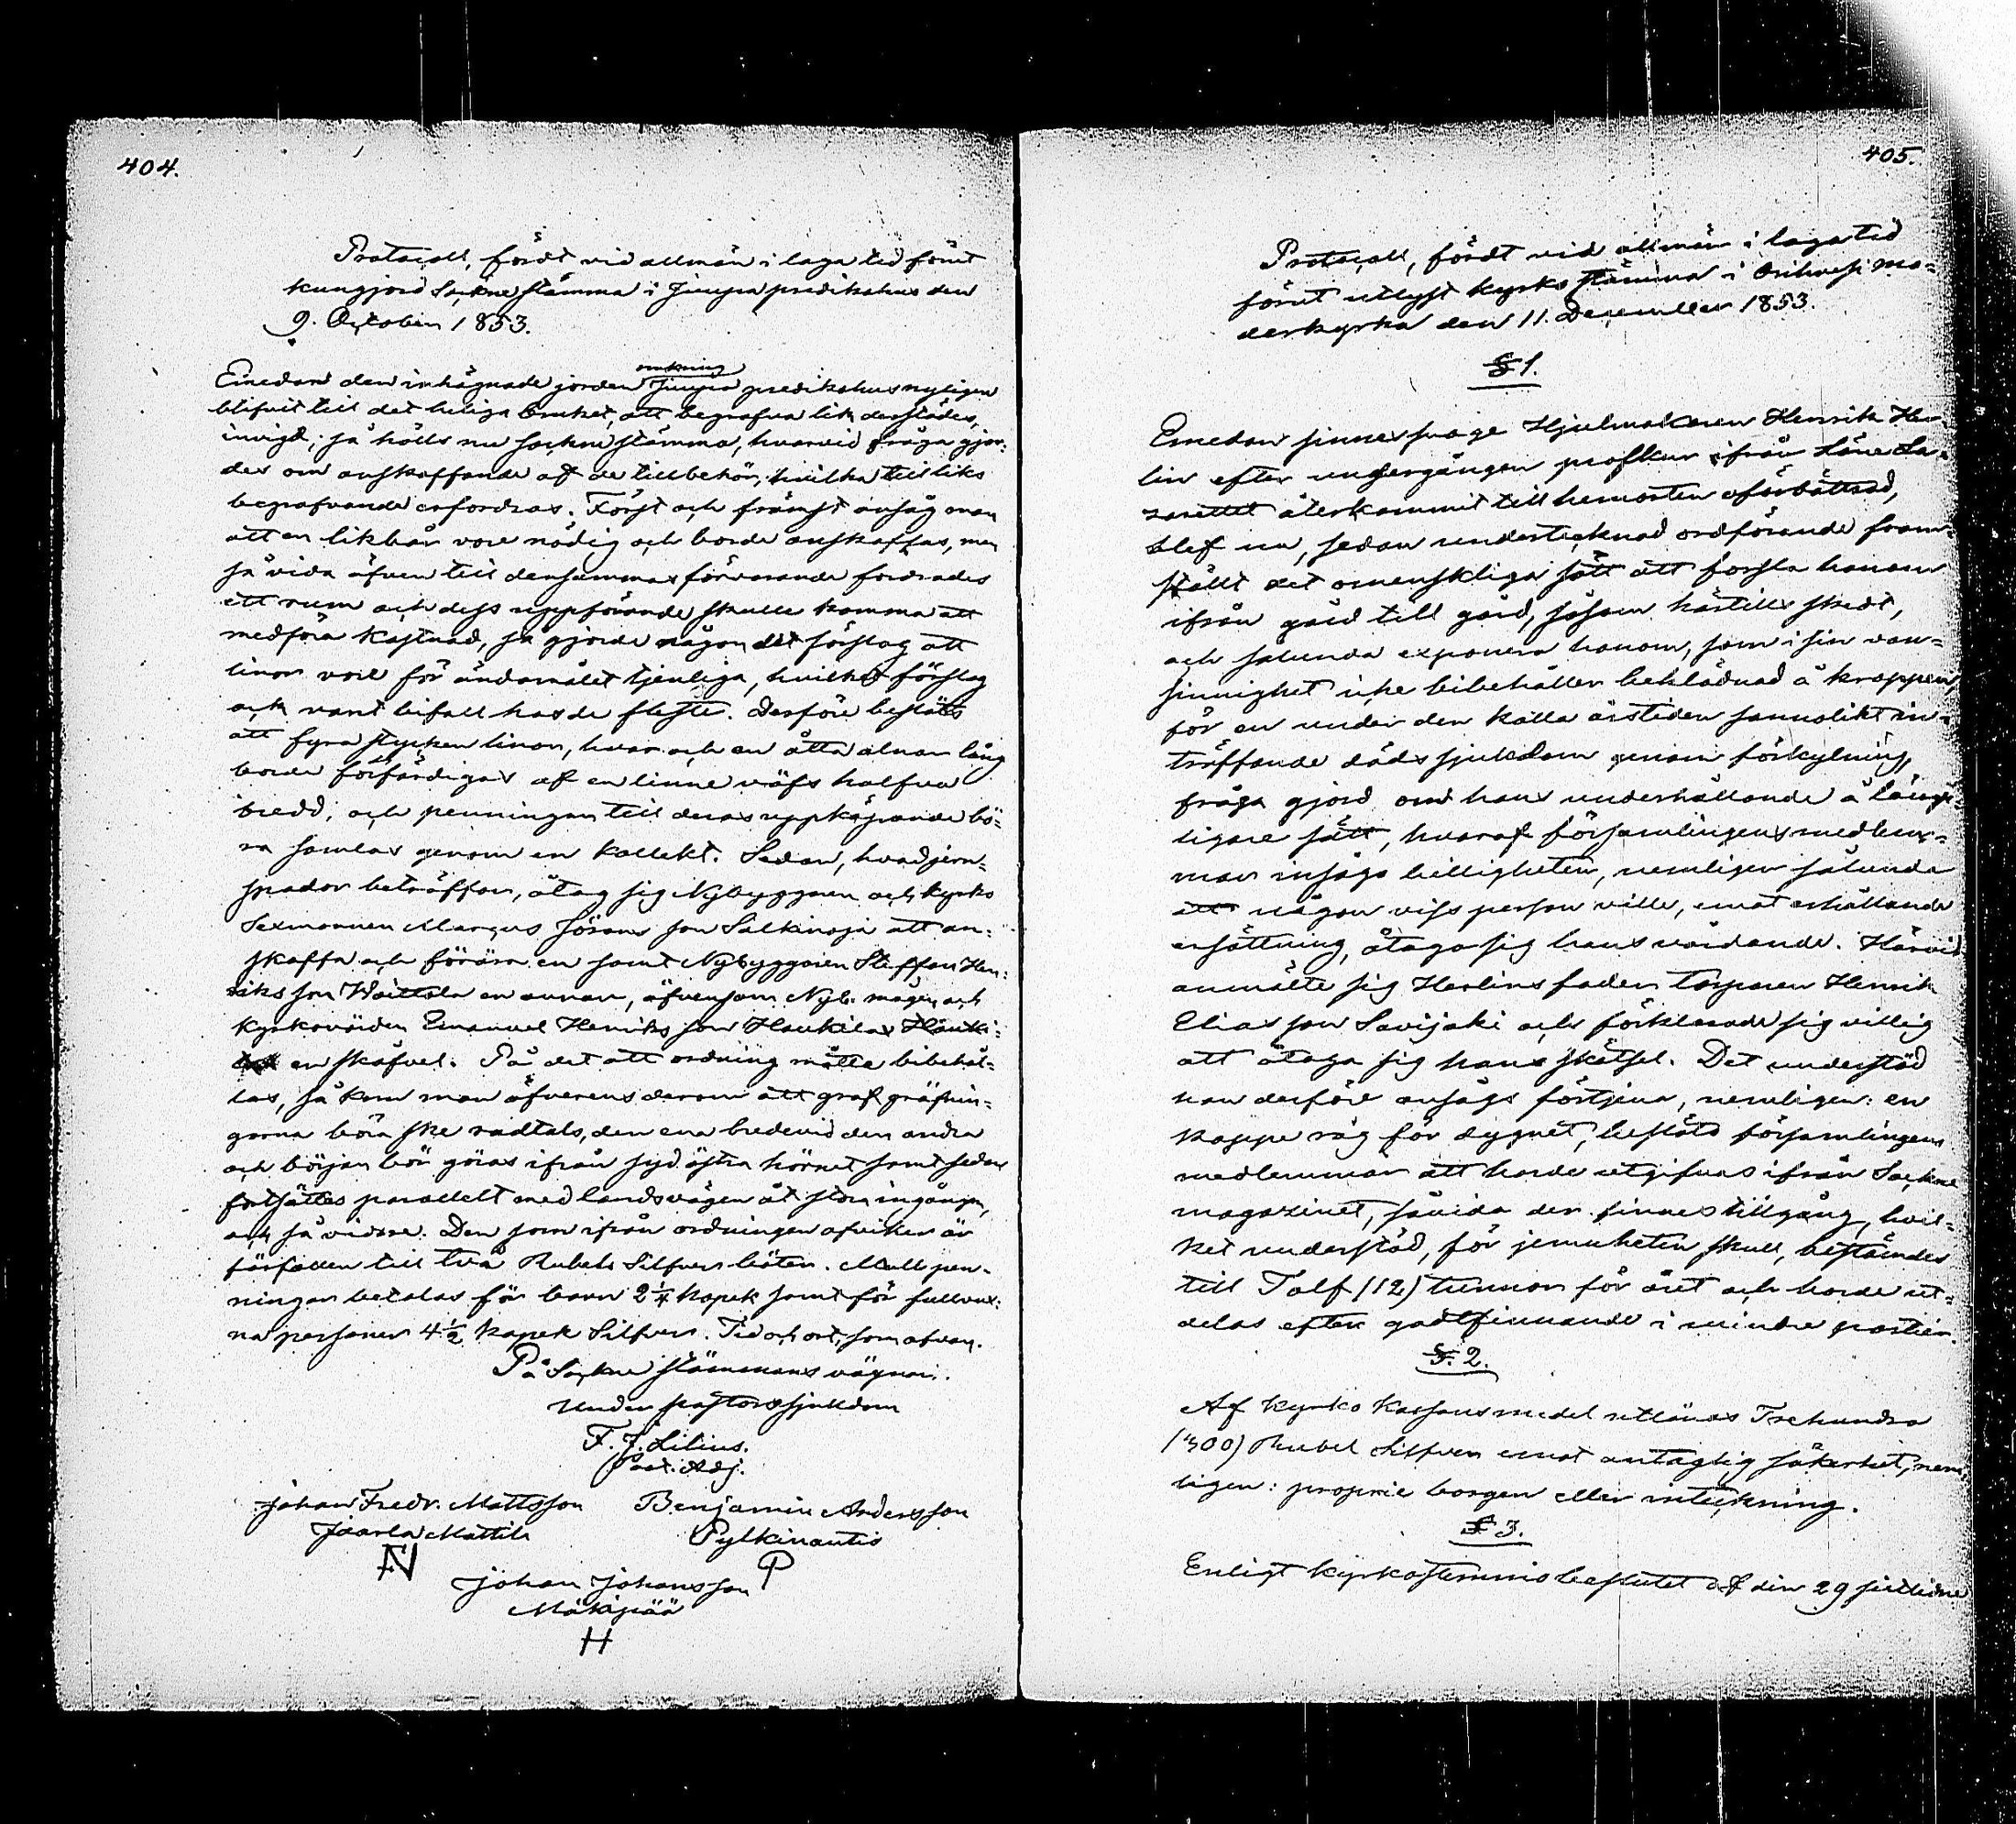 404.
Protocoll, fördt vid allmän i laga tid förut
kungjord Sockne stämma i Juupa predikohus den
9. October 1853.
omkring
Emedan den inhägnade jorden Juupa predikohus nyligen
blifvit till det heliga bruket, att begrafva lik derstädes,
invigd; så hölls nu sockne stämma, hvarvid fråga gjor-
des om anskaffande af de tillbehör, hvilka till liks
begrafvande erfordras. Först och främst ansåg man
att en likbår vore nödig och borde anskaffas, men
så vida äfven till densammas förvarande fordrades
ett rum och dess uppförande skulle komma att
medföra kostnad, så gjorde någon det förslag att
linor vore för ändamålet tjenliga, hvilket förslag
ock vant bifall hos de fleste. Derföre beslöts
att fyra stycken linor, hvar och en åtta alnar lång
borde förfärdigas af en linne väfs halfva
bredd; och penningar till deras uppköpande bö-
ra samlas genom en kollekt. Sedan, hvad jern-
spador beträffar, åtog sig Nybyggaren och kyrko
Sexmannen Marcus Jörans son Salkinoja att an-
skaffa och förära en samt Nybyggaren Steffan Hen-
riks son Waittola en annan, äfvensom Nyb. mågen och
Kyrkovärden Emanuel Henriks son Haukilax Hauki-
en skofvel. På det att ordning måtte bibehål-
las, så kom man öfverens derom att graf gräfnin-
garna böra ske radtals, den ena bredevid den andra
och början bör göras ifrån sydöstra hörnet samt sedan
fortsättes parallelt med landsvägen åt stora ingången,
och så vidare. Den som ifrån ordningen afviker är
förfallen till två Rubels Silfvers böter. Mull pen-
ningar betalas för barn 2 1/4 kopek samt för fullvux-
na personer 4 1/2 kopek Silfver. Tid och ort, som ofvan.
På Sockne stämmans vägnar:
Under pastors sjukdom
F. J. Lilius.
Past. Adj.
Johan Fredr. Mattsson Benjamin Andersson
Jaarla Mattila Pylkinautio
P
Johan Johansson
Mäkipää
H
405.
Protocoll, fördt vid allmän i laga tid
förut utlyst kyrko stämma i Orihvesi mo-
derkyrka den 11. December 1853.
§ 1.
Emedan sinnessvage Hjulmakaren Henrik Her-
lin efter undergången profkur ifrån Läne La-
zarettet återkommit till hemorten oförbättrad,
blef nu, sedan undertecknad ordförande fram-
ställt det omenskliga sätt att forsla honom
ifrån gård till gård, såsom härtills skedt,
och sålunda exponera honom, som i sin van-
sinnighet icke bibehåller beklädnad å kroppen,
för en under den kalla årstiden sannolikt in-
träffande dödssjukdom genom förkylning,
fråga gjord om hans underhållande å lämp-
ligare sätt, hvaraf församlingens medlem-
mar insågo billigheten, nemligen sålunda
att någon viss person ville, emot erhållande
ersättning, åtaga sig hans vårdande. Härvid
anmälte sig Herlins fader torparen Henrik
Elias son Savijoki och förklarade sig villig
att åtaga sig hans skötsel. Det understöd
han derföre ansågs förtjena, nemligen: en
kappe råg för dygnet, beslöto församlingens
medlemmar att borde utgifvas ifrån Sockne
magazinet, såvida der finnes tillgång, hvil-
ket understöd, för jemnheten skull, bestämdes
till Tolf (12) tunnor för året och borde ut-
delas efter godtfinnande i mindre partier.
§. 2.
Af Kyrko Kassans medel utlånas Trehundra
(300) Rubel Silfver emot antaglig säkerhet, nem-
ligen: proprie borgen eller inteckning.
§ 3.
Enligt Kyrkostemmobeslutet af den 29 sistlidne